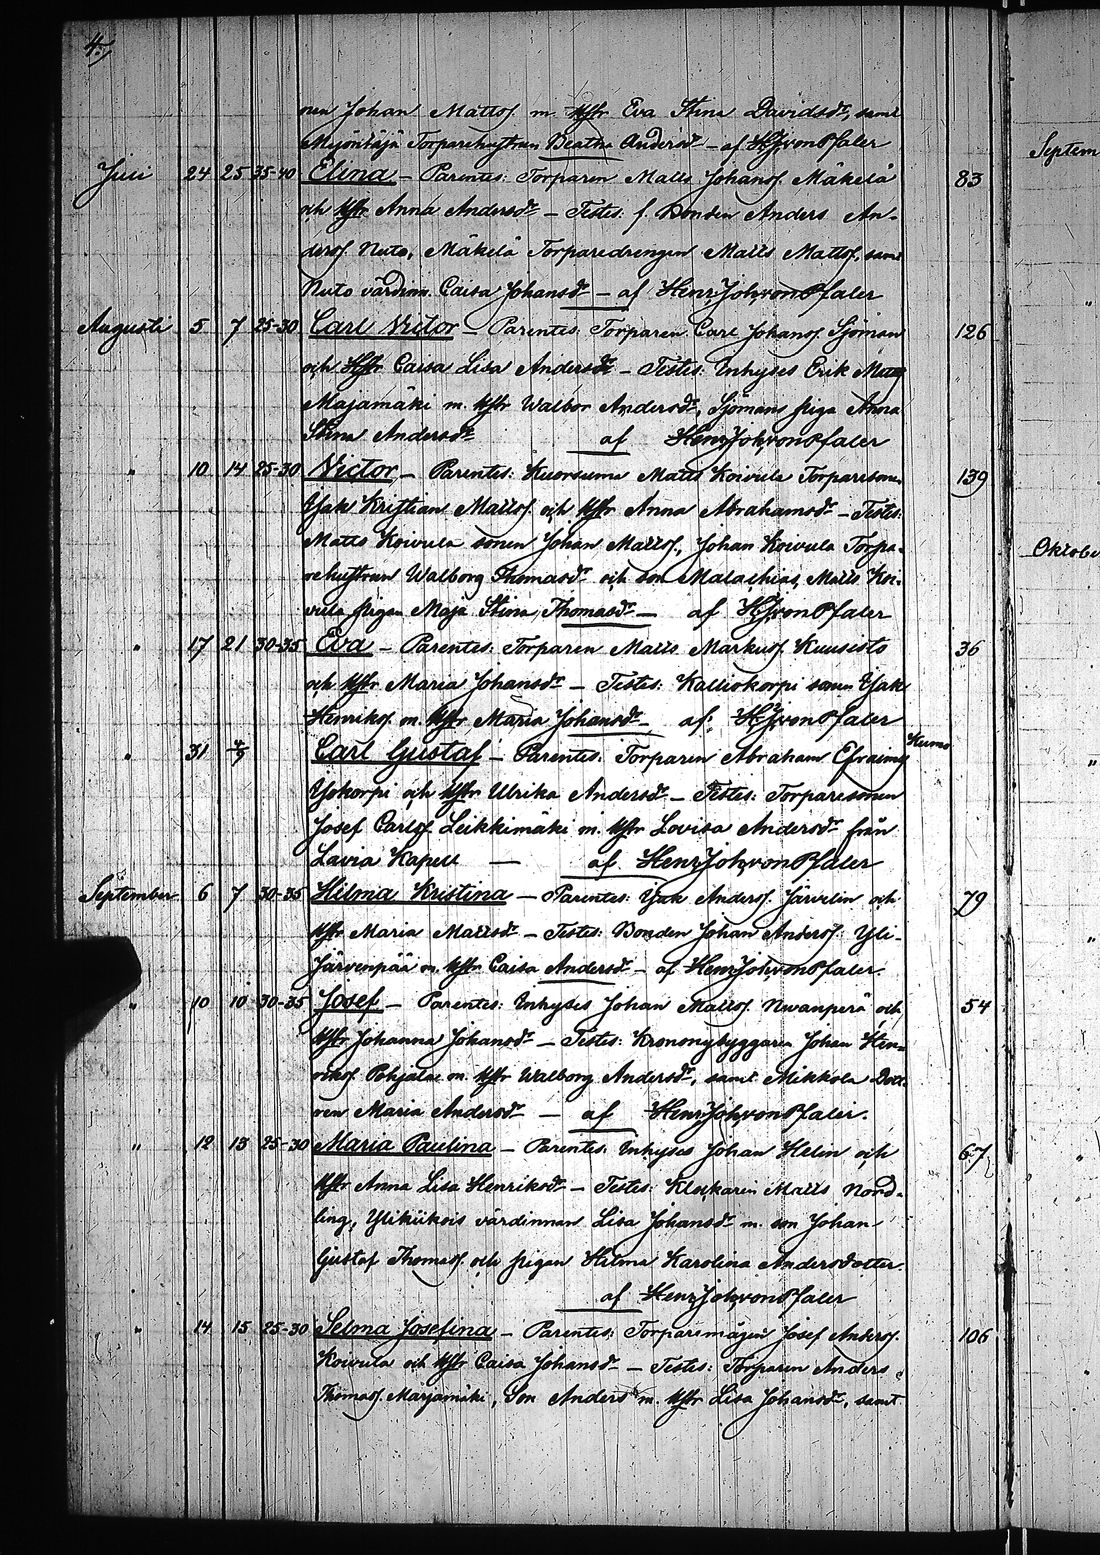 4.
ren Johan Mattsf. m. hstr Eva Stina Davidsdr, samt
Torparehustrun Beatha Andersdr – af HJvonPfaler
Juli 24 25 35-40 Elina – Parentes: Torparen Matts Johansf. Mäkelä 83
och hstr Anna Andersdr – Testes: f. Bonden Anders An-
dersf. Nuto, Mäkelä Torparedrengen Matts Mattsf., samt
Nuto värdinn. Caisa Johansdr – af HenrJohvonPfaler
Augusti 5 7 25-30 Carl Victor – Parentes: Torparen Carl Johansf. Sjöman 126
och Hstr Caisa Lisa Andersdr – Testes: Inhyses Erik
Majamäki m. hstr Walbor Andersdr, Sjömans piga Anna
Stina Andersdr af HenrJohvonPfaler
" 10 14 25-30 Victor, – Parentes: Kuorsuma Matts Koivula Torpareson 139
Isak Kristian Mattsf. och hstr Anna Abrahamsdr – Testes:
Matts Koivula sonen Johan Mattsf., Johan Koivula Torpa-
rehustrun Walborg Thomasdr och son Malachias, Matts Koi-
vula pigan Maja Stina Thomasdr – af HJvonPfaler
" 17 21 30-35 Eva – Parentes: Torparen Matts Markusf. Kuusisto 36
och hstr Maria Johansdr – Testes: Kalliokorpi sonen Isak
Henriksf. m. hstr Maria Johansdr – af: HJvonPfaler
" 31 4/9 Carl Gustaf – Parentes: Torparen Abraham Efraimsf. Kumo
Isokorpi och hstr Ulrika Andersdr – Testes: Torparesonen
Josef Carlsf. Leikkimäki m. hstr Lovisa Andersdr från
Lavia Kapell – af HenrJohvonPfaler
September 6 7 30-35 Hilma Kristina – Parentes: Isak Andersf. Järvelin och 79
hstr Maria Mattsdr – Testes: Bonden Johan Andersf. Yli-
Järvenpää m. hstr Caisa Andersdr – af HenrJohvonPfaler.
" 10 10 30-35 Josef – Parentes: Inhyses Johan Mattsf. Nivanperä och 54
hstr Johanna Johansdr – Testes: Krononybyggaren Johan Hen-
riksf. Pohjala m. hstr Walborg Andersdr, samt Mikkola Dott-
ren Maria Andersdr – af HenrJohvonPfaler.
" 12 13 25-30 Maria Paulina – Parentes: Inhyses Johan Helin och 67
hstr Anna Lisa Henriksdr – Testes: Klockaren Matts Nord-
ling, Ylikiikois värdinnan Lisa Johansdr m. son Johan
Gustaf Thomasf. och pigan Hilma Karolina Andersdotter.
af HenrJohvonPfaler
" 14 15 25-30 Selma Josefina – Parentes: Torparemågen Josef Andersf. 106
Koivula och hstr Caisa Johansdr – Testes: Torparen Anders
Thomasf. Marjamäki, Son Anders m. hstr Lisa Johansdr, samt
Septem
Oktobe
"
"
"